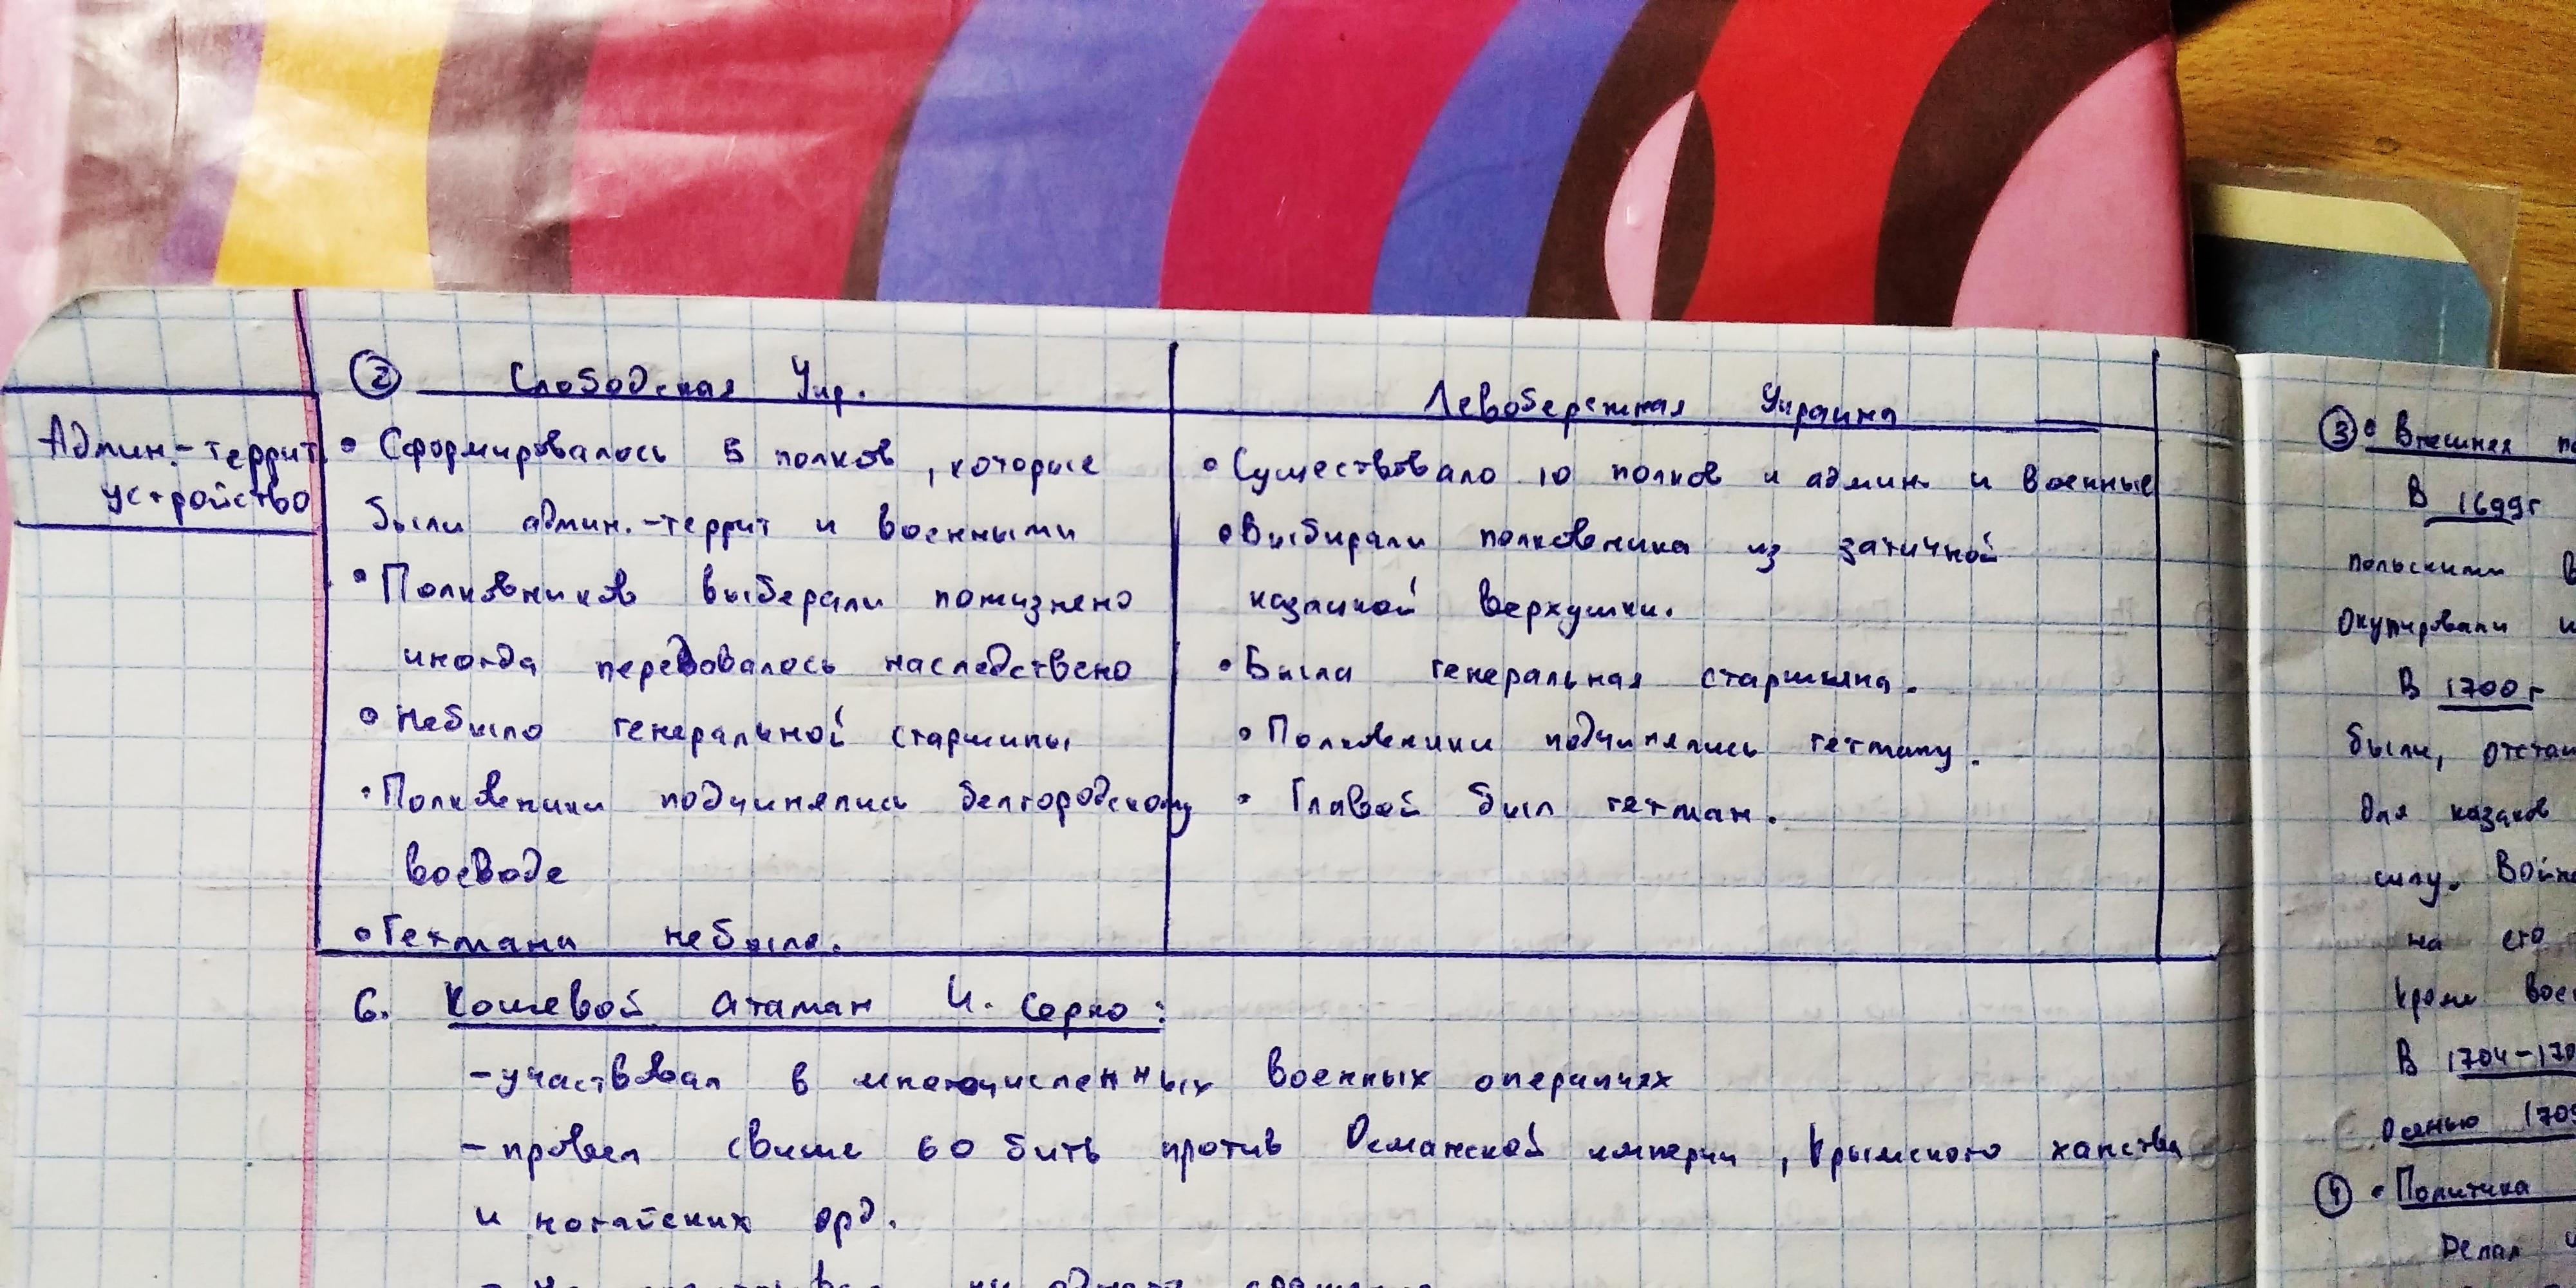 ② Слободская Укр.
Левобережная Украина
Админ.-террит
устройство
• Сформировалось 5 полков, которые
были админ.-террит и военными
• Полковников выберали пожизнено
иногда передовалось наследствено
• Небыло генеральной старшины
• Полковники подчинялись белгородскому
воеводе
• Гетмана небыло.
• Существовало 10 полков и админ. и военные
• Выбирали полковника из зажичной
казацкой верхушки.
• Была генеральная старшина.
• Полковники подчинялись гетману.
• Главой был гетман.
6. Кошевой атаман И. Серко:
- участвовал в многочисленных военных операциях
- провел свыше 60 бить против Османской империи, Крымского ханства
и ногайских орд.
③ • Внешняя
В 1699г
польскими
Окупировали
В 1700г
были,
для казаков
силу. 
на его
Кроме
В 1704-
Осенью
④ • Политика
Делал